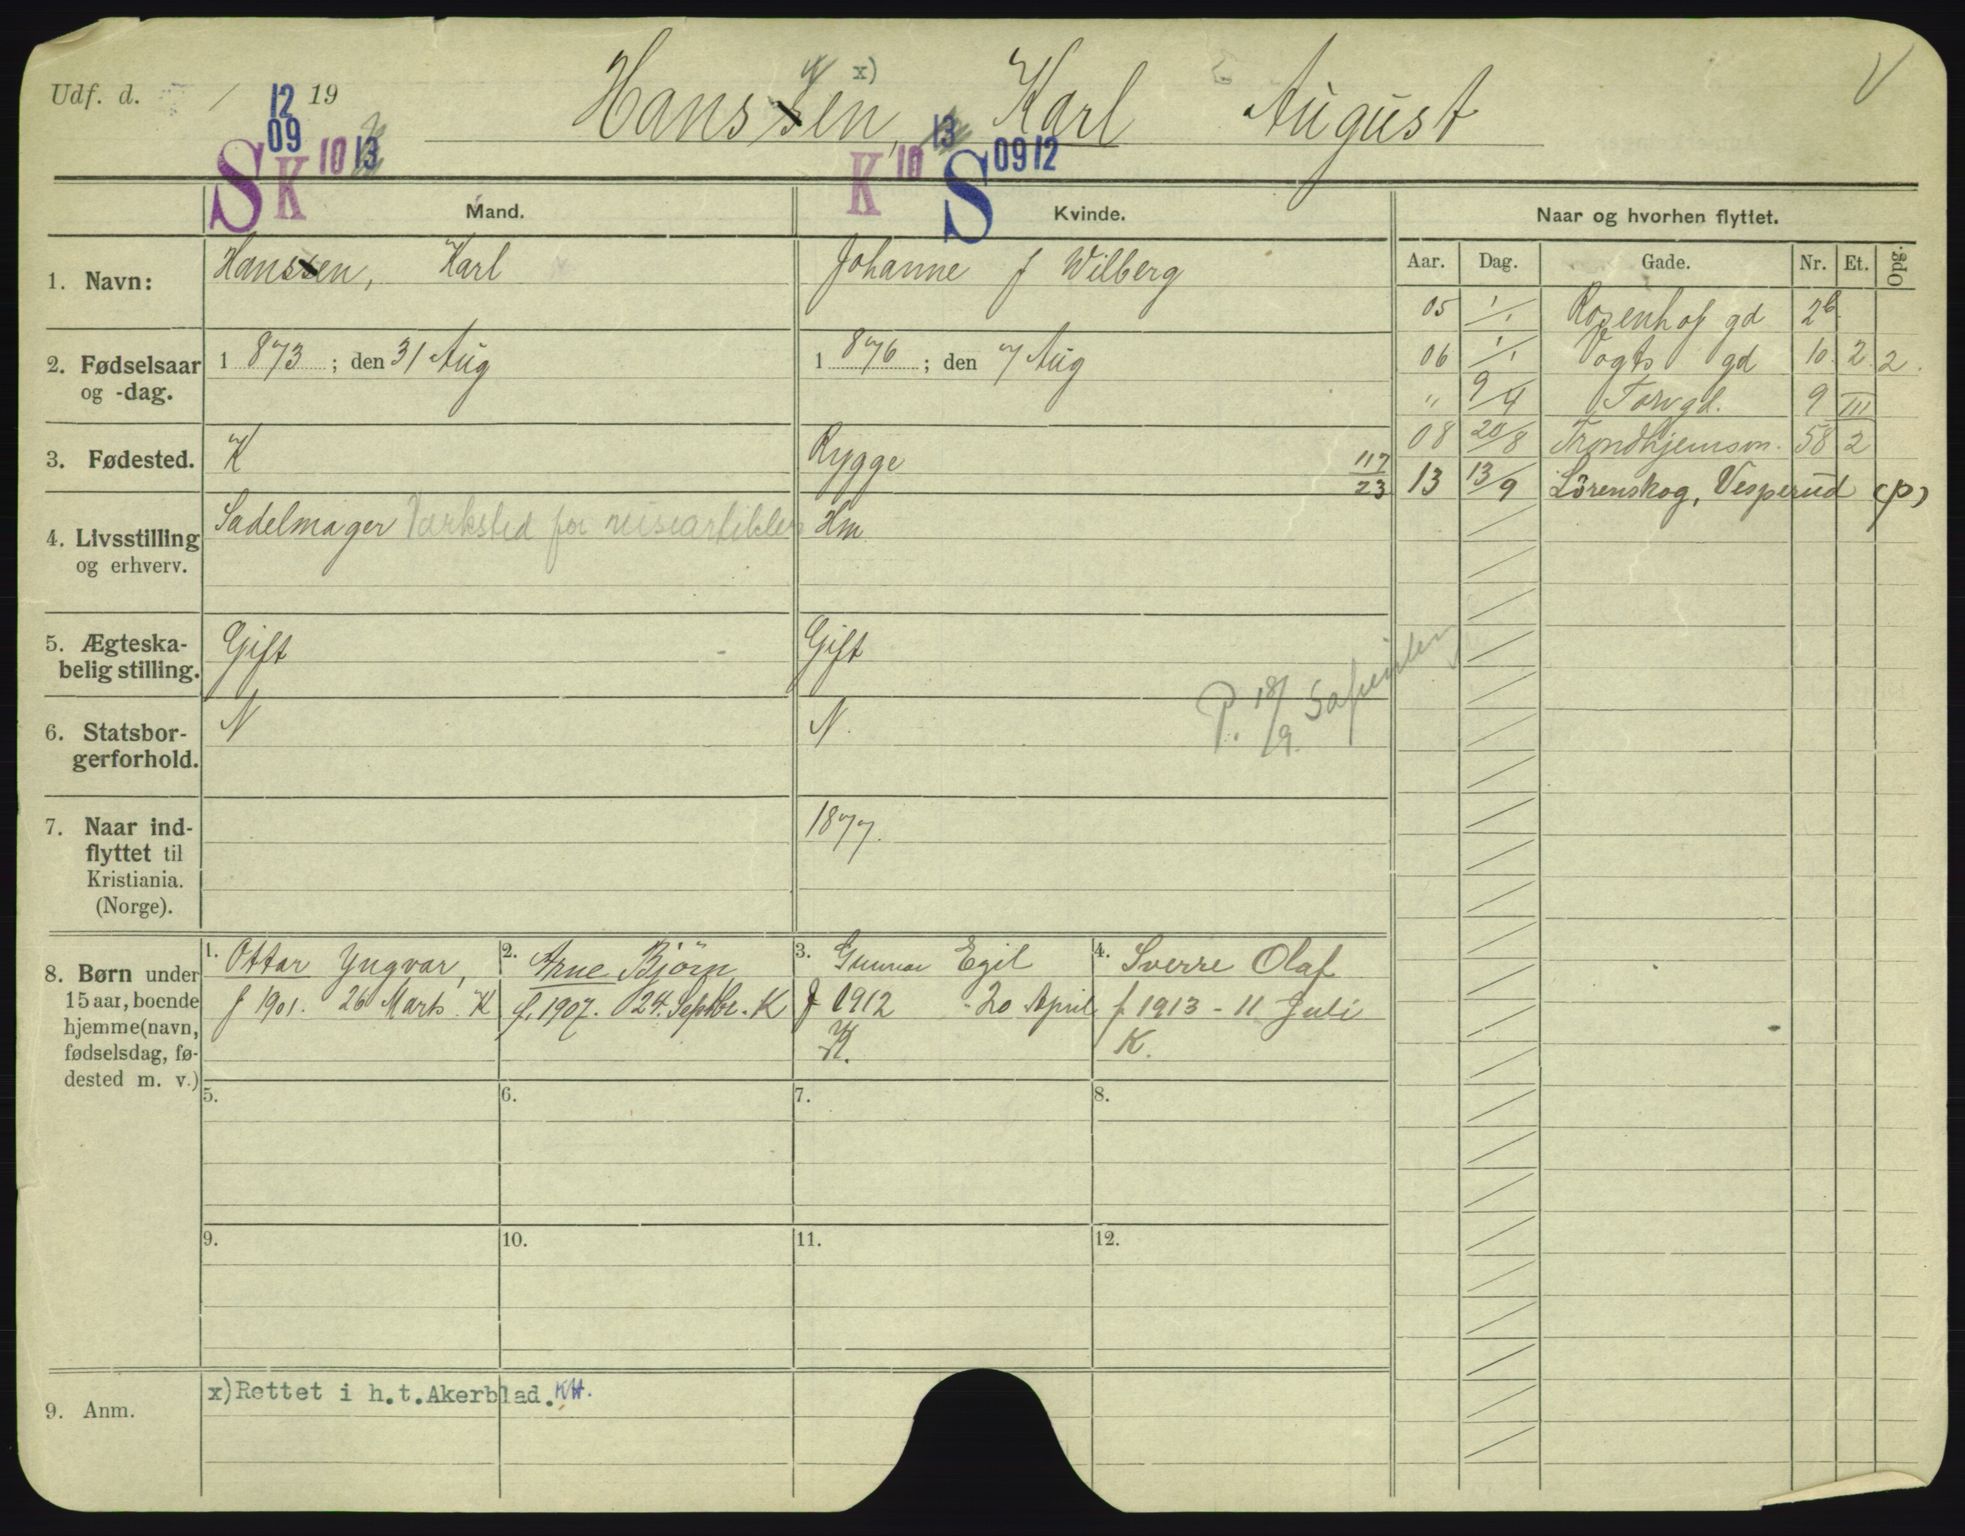 Udf. d. / 19
12
09
S K 10 13
Hanssen, Karl August
x)
V
K 10 13 S 09 12
Mand.
Kvinde.
Naar og hvorhen flyttet.
Aar. Dag. Gade. Nr. Et. Opg.
1. Navn:
Hanssen, Karl
Johanne f Wilberg
05 1/1 Rosenhof gd 2b
2. Fødselsaar og -dag.
1 873 ; den 31 Aug
1 876 ; den 7 Aug
06 1/1 Vogts gd 10 2 2.
" 9/4 Torvgd. 9 III
3. Fødested.
K
Rygge 117/23
08 20/8 Trondhjemsvn. 58 2
13 13/9 Lörenskog, Vesperud (p)
4. Livsstilling og erhverv.
Sadelmager Værksted for reiseartikler
Hm
5. Ægteskabelig stilling.
Gift
Gift
P. 18/9.
6. Statsborgerforhold.
N
N.
7. Naar indflyttet til Kristiania. (Norge).
1877.
8. Børn under 15 aar, boende hjemme (navn, fødselsdag, fødested m. v.)
1. Ottar Yngvar, f 1901. 26 Marts. K
2. Arne Björn, f. 1907. 24. Septbr. K
3. Gunnar Egil f 1912 - 20 April K.
4. Sverre Olaf f 1913 - 11 Juli K.
5. 6. 7. 8.
9. 10. 11. 12.
9. Anm.
x) Rettet i h.t. Akerblad. KH.